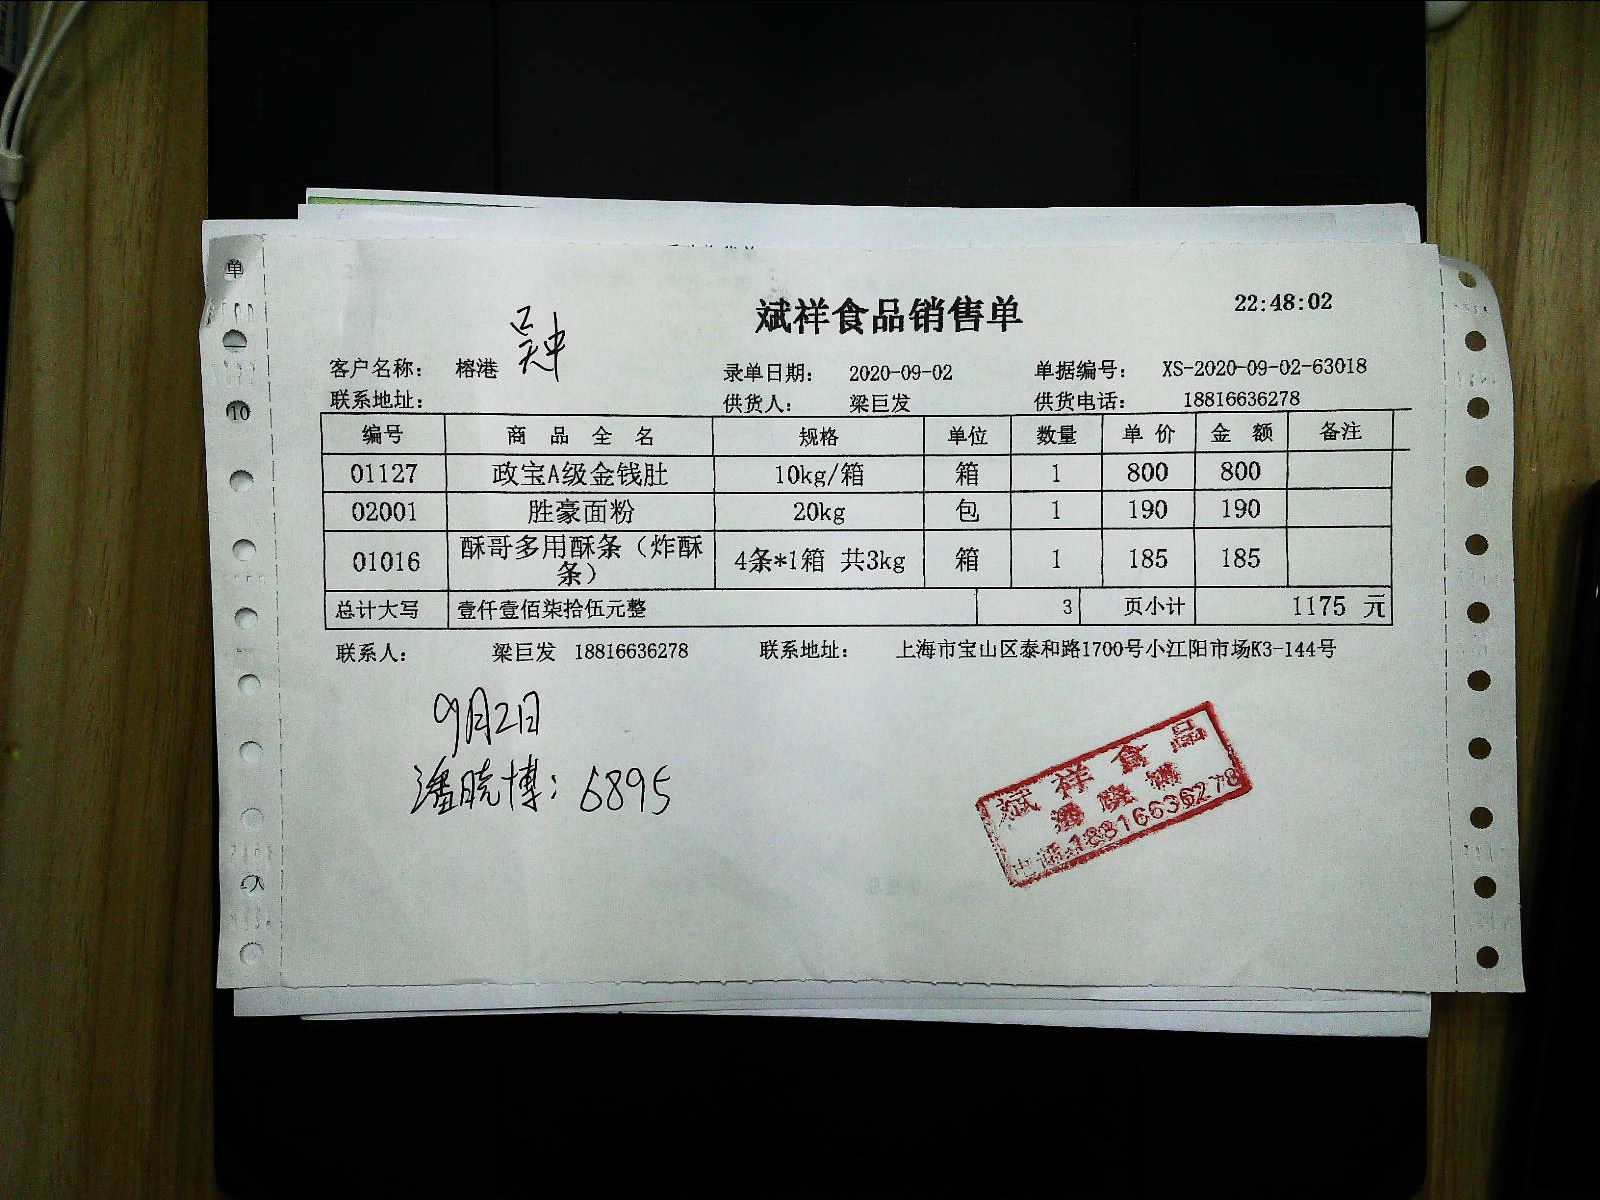 单
22:48:02
斌祥食品销售单
客户名称: 榕港 吴中 录单日期: 2020-09-02 单据编号: XS-2020-09-02-63018
联系地址: 供货人: 梁巨发 供货电话: 18816636278
编号 商 品 全 名 规格 单位 数量 单 价 金 额 备注
01127 政宝A级金钱肚 10kg/箱 箱 1 800 800
02001 胜豪面粉 20kg 包 1 190 190
01016 酥哥多用酥条（炸酥条） 4条*1箱 共3kg 箱 1 185 185
总计大写 壹仟壹佰柒拾伍元整 3 页小计 1175 元
联系人: 梁巨发 18816636278 联系地址: 上海市宝山区泰和路1700号小江阳市场K3-144号
9月2日
潘晓博: 6895
斌祥食品
潘晓博
电话:18816636278
10